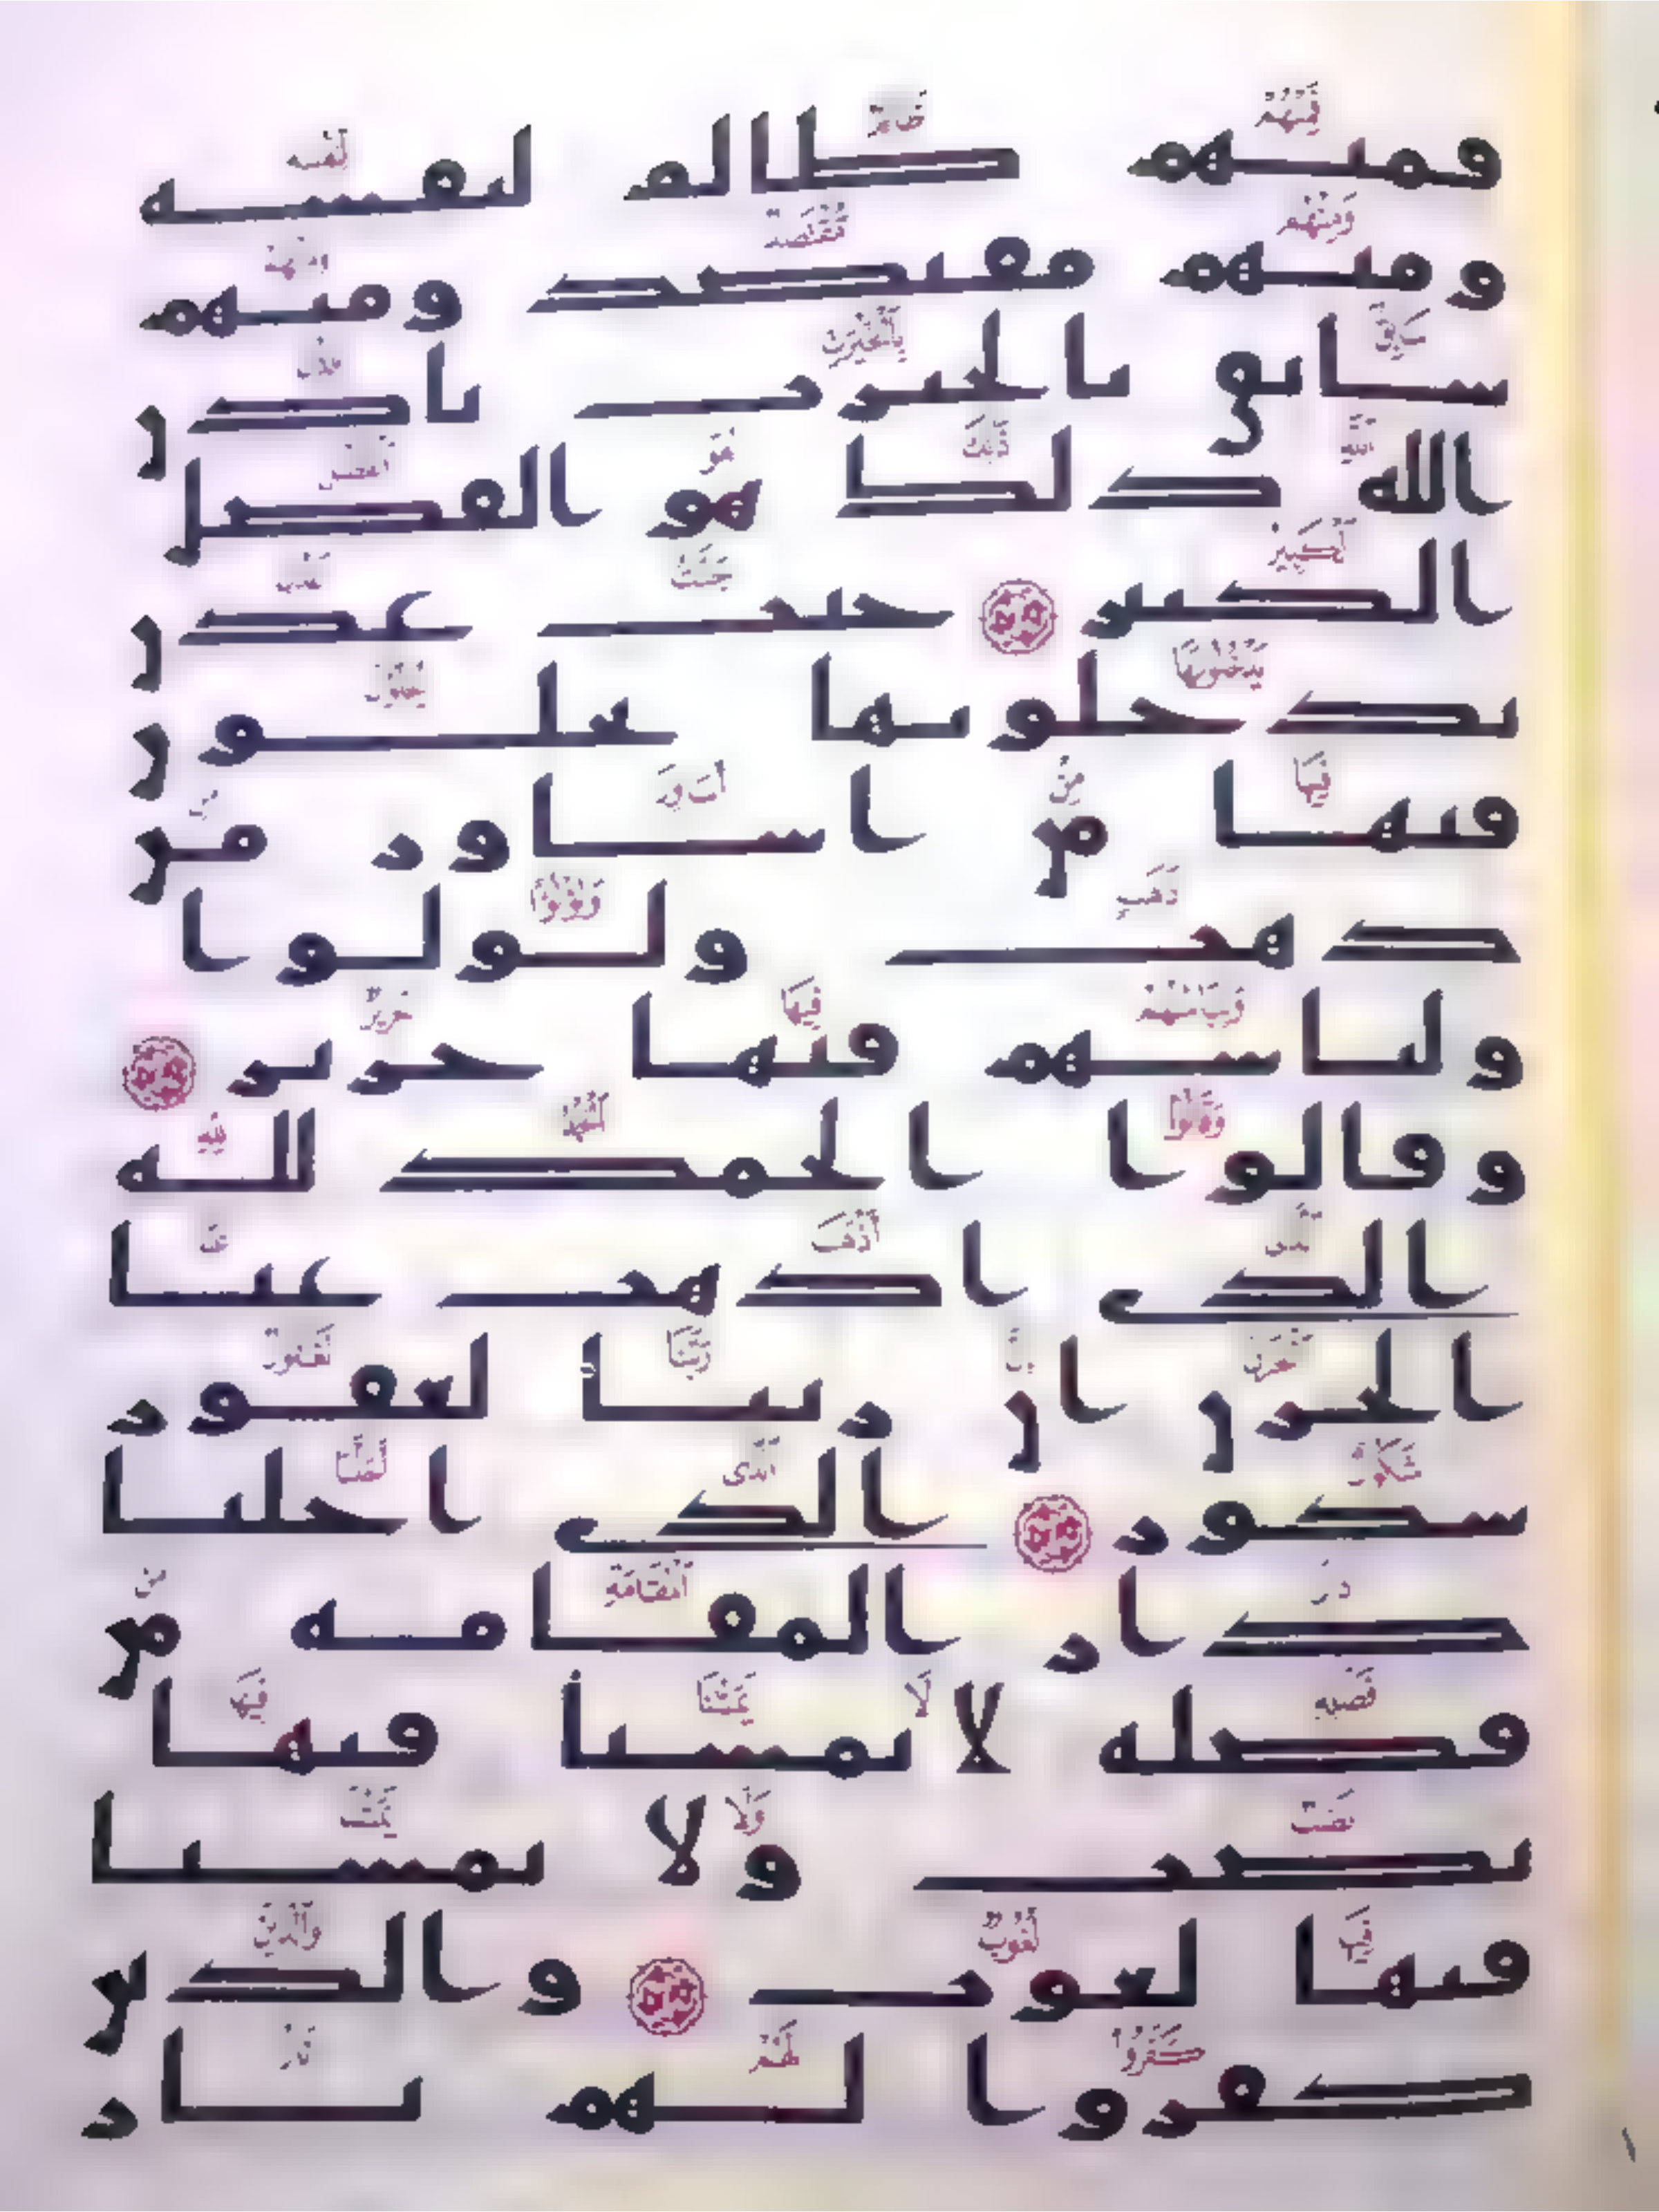 فمنهم ظالم لنفسه
ومنهم مقتصد ومنهم
سابق بالخيرت باذن
الله ذلك هو الفضل
الكبير جنت عدن
يدخلونها يحلون
فيها من اساور من
ذهب ولولوا
ولباسهم فيها حرير
وقالوا الحمد لله
الذي اذهب عنا
الحزن ان ربنا لغفور
شكور الذي احلنا
دار المقامه من
فضله لا يمسنا فيها
نصب ولا يمسنا
فيها لغوب والذين
كفروا لهم نار